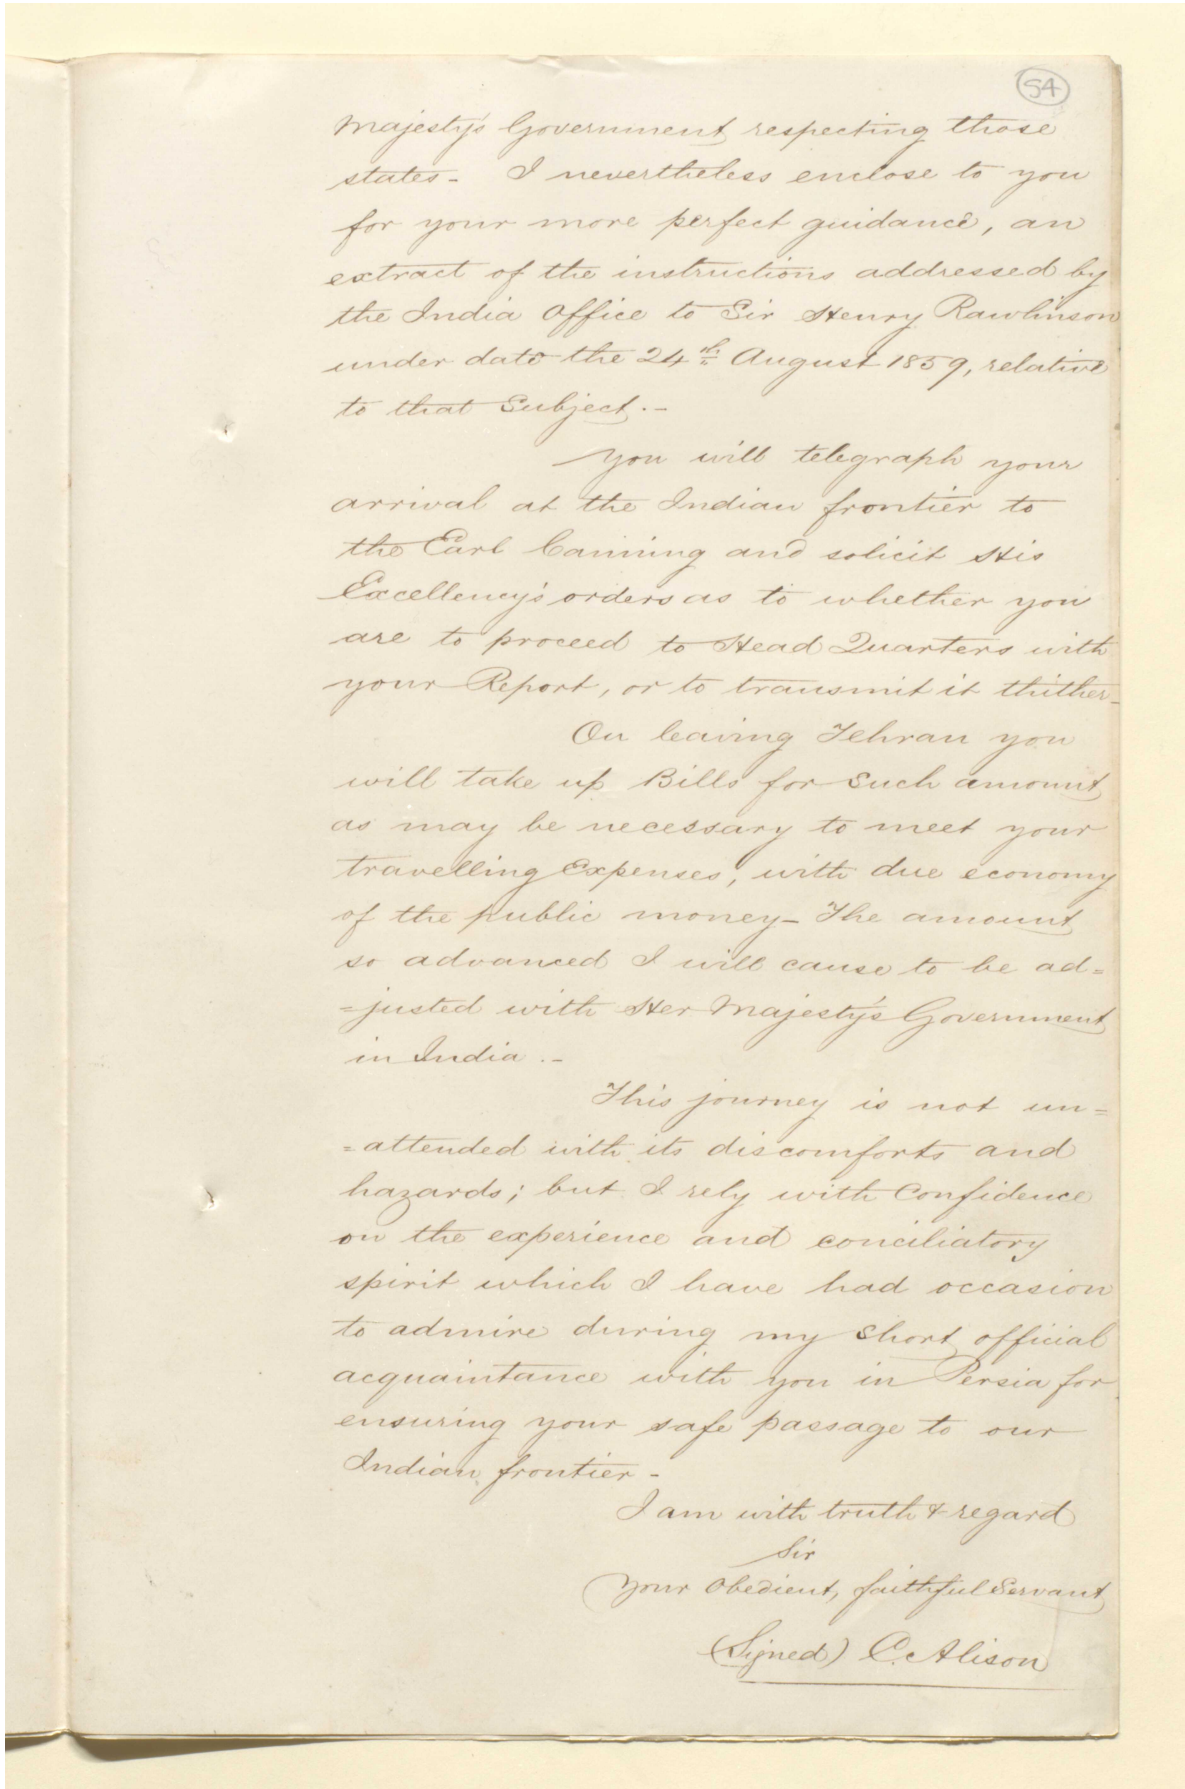 54
Majesty's Government respecting those
states - I nevertheless enclose to you
for your more perfect guidance, an
extract of the instructions addressed by
the India Office to Sir Henry Rawlinson
under date the 24th August 1859, relative
to that Subject. -
You will telegraph your
arrival at the Indian frontier to
the Earl Canning and solicit His
Excellency's orders as to whether you
are to proceed to Head Quarters with
your Report, or to transmit it thither -
On leaving Tehran you
will take up Bills for such amount
as may be necessary to meet your
travelling Expenses, with due economy
of the public money - The amount
so advanced I will cause to be ad=
=justed with Her Majesty's Government
in India . -
This journey is not un=
=attended with its discomforts and
hazards; but I rely with Confidence
on the experience and conciliatory
spirit which I have had occasion
to admire during my short official
acquaintance with you in Persia for
ensuring your safe passage to our
Indian frontier -
I am with truth & regard
Sir
Your Obedient, faithful Servant
(Signed) C. Alison